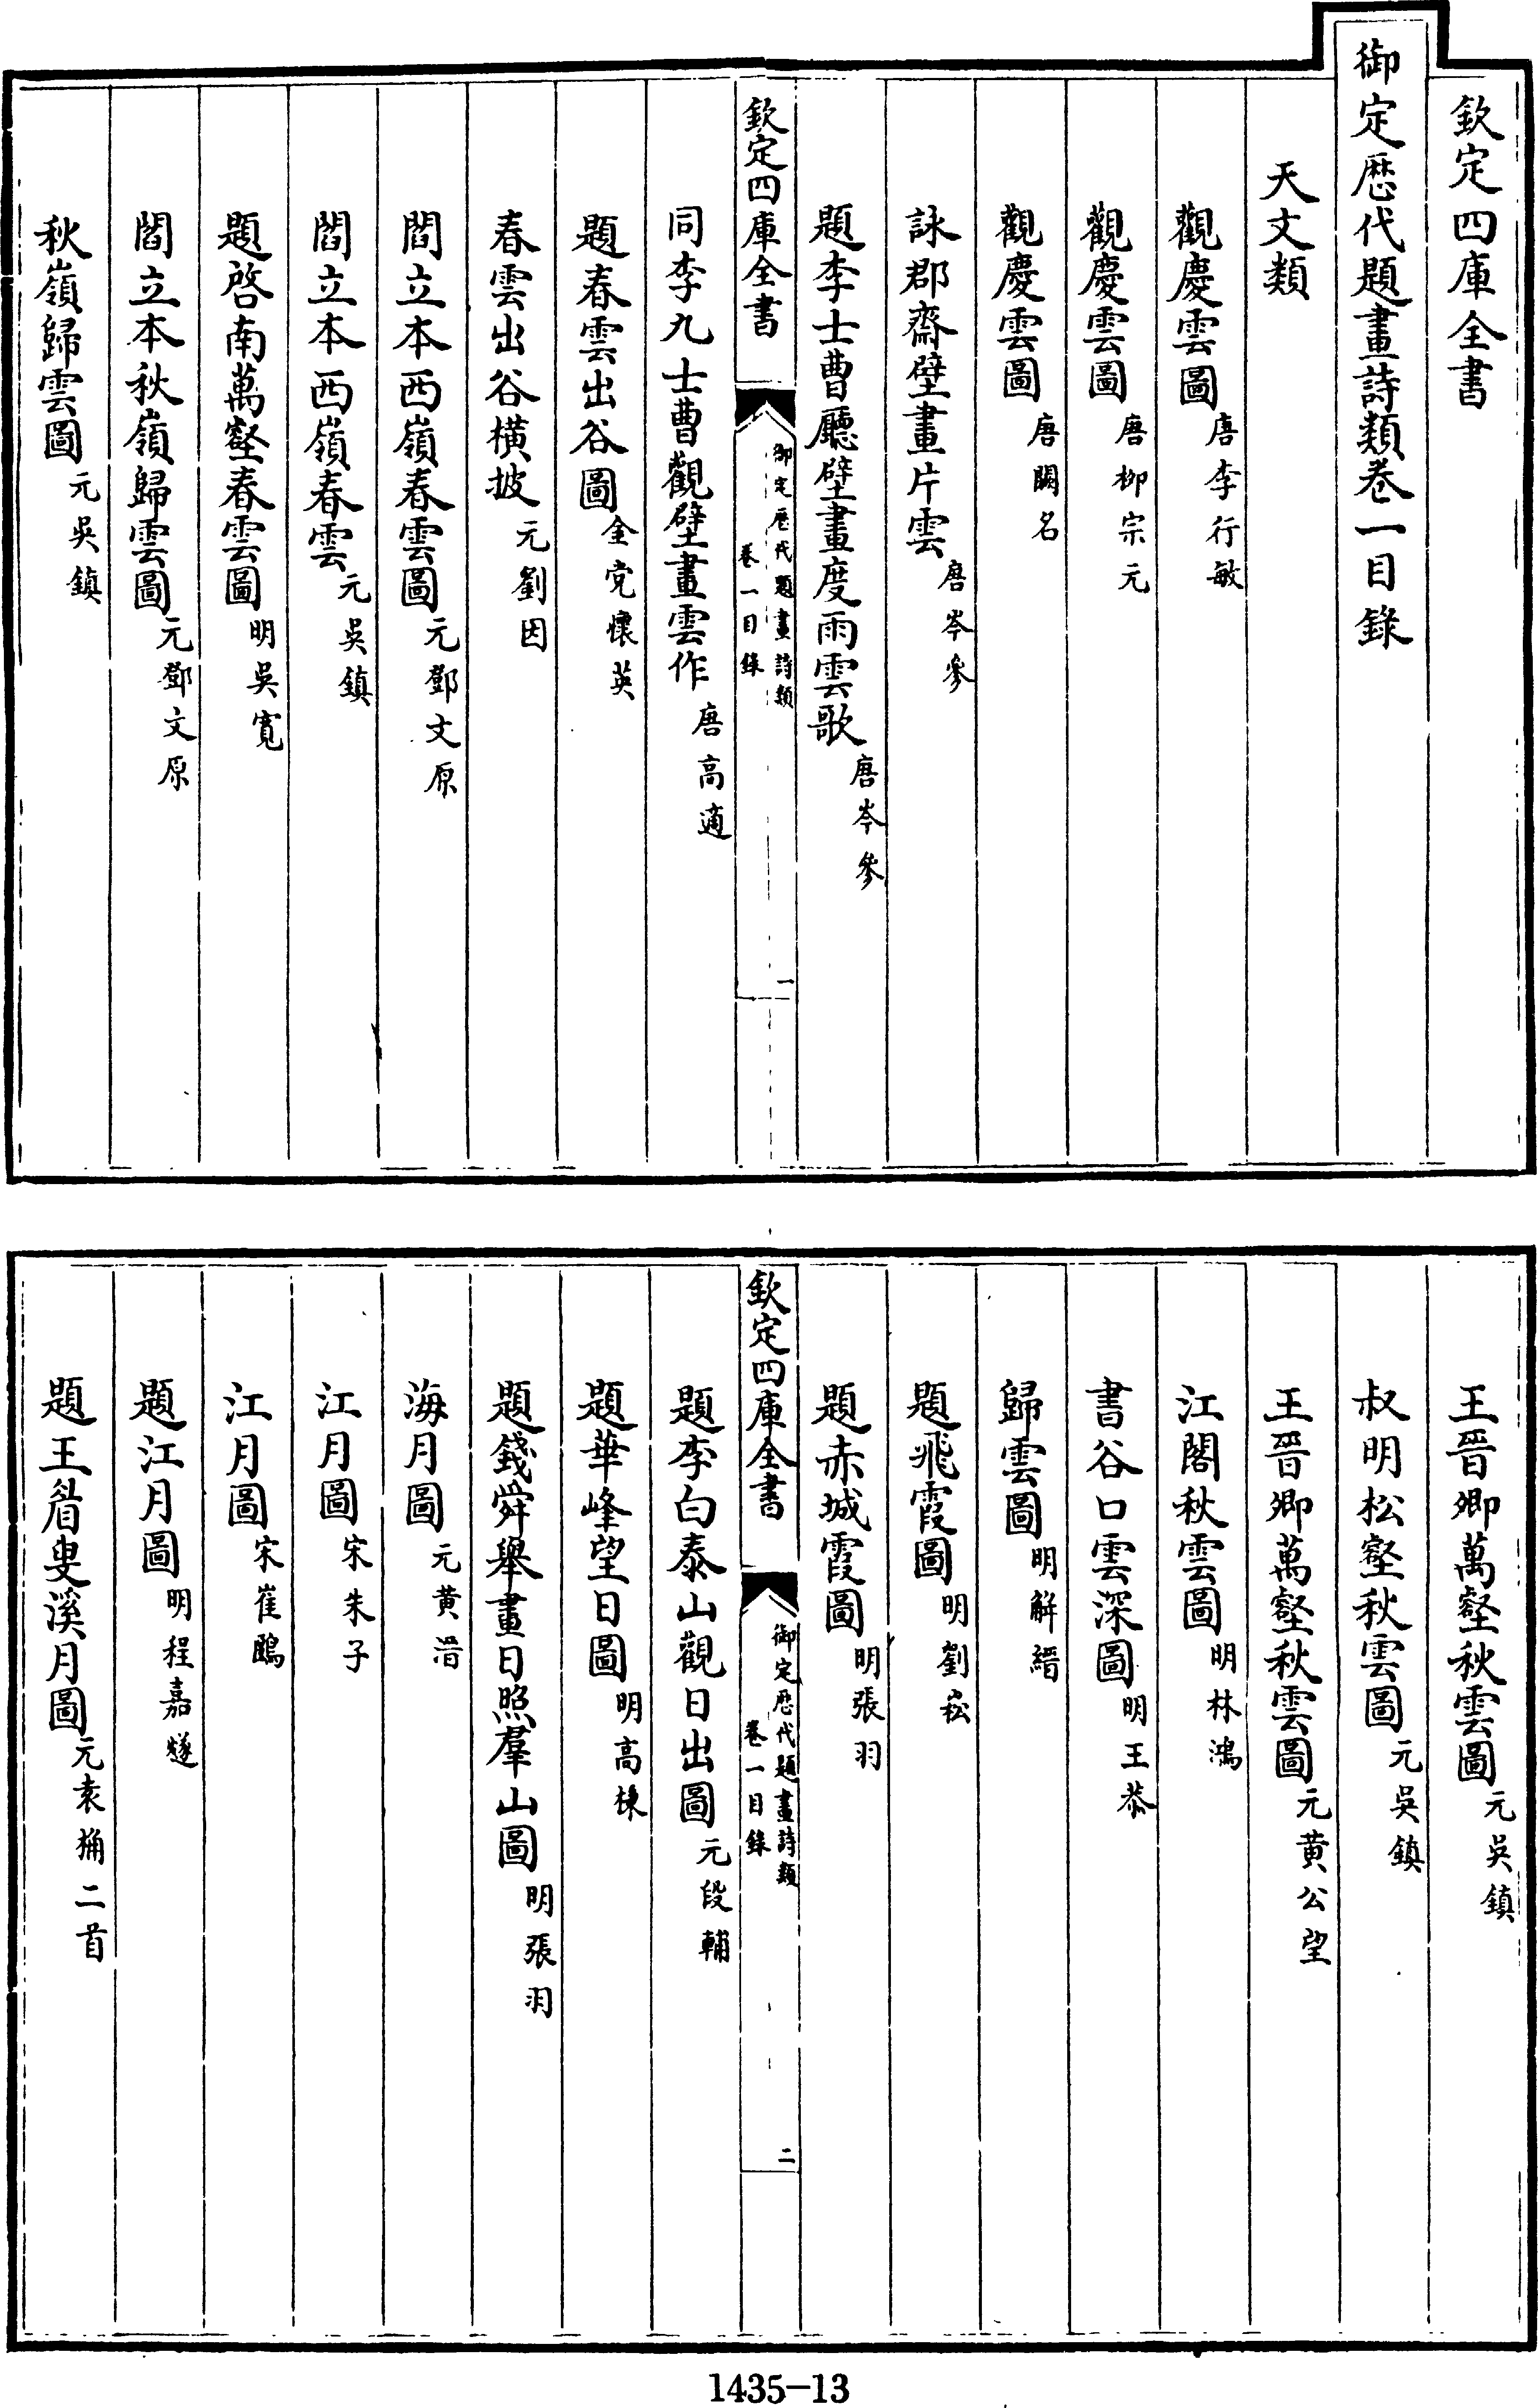 欽定四庫全書
御定歴代題畫詩類卷一目錄
天文類
觀慶雲圖唐李行敏
觀慶雲圖唐柳宗元
觀慶雲圖唐闕名
詠郡齋壁畫片雲唐岑參
題李士曹廳壁畫度雨雲歌唐岑參
欽定四庫全書
御定歴代題畫詩類
卷一目錄
一
同李九士曹觀壁畫雲作唐高適
題春雲出谷圖金党懷英
春雲出谷橫披元劉因
閻立本西嶺春雲圖元鄧文原
閻立本西嶺春雲元吳鎮
題啓南萬壑春雲圖明吳寬
閻立本秋嶺歸雲圖元鄧文原
秋嶺歸雲圖元吳鎮
王晉卿萬壑秋雲圖元吳鎮
叔明松壑秋雲圖元吳鎮
王晉卿萬壑秋雲圖元黄公望
江閣秋雲圖明林鴻
書谷口雲深圖明王恭
歸雲圖明解縉
題飛霞圖明劉崧
題赤城霞圖明張羽
欽定四庫全書
御定歴代題畫詩類
卷一目錄
二
題李白泰山觀日出圖元段輔
題華峰望日圖明高棅
題錢舜舉畫日照羣山圖明張羽
海月圖元黄溍
江月圖宋朱子
江月圖宋崔鶠
題江月圖明程嘉燧
題王眉叟溪月圖元袁桷二首
1435-13